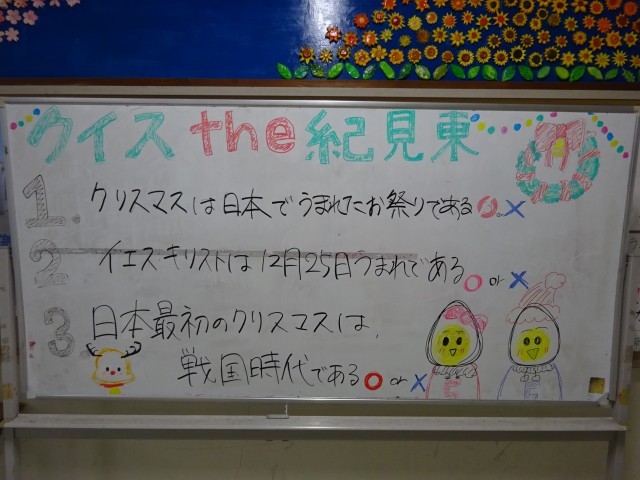 クイズ the 紀見東
1. クリスマスは日本でうまれたお祭りである ○or×
2 イエス・キリストは12月25日うまれである ○ or ×
3 日本最初のクリスマスは、
戦国時代である ○ or ×